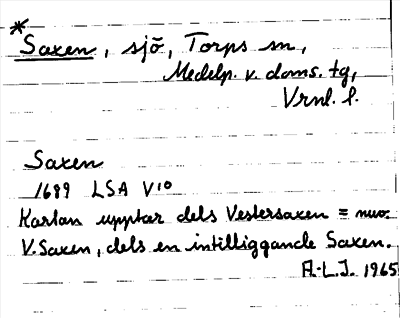 *Saxen, sjö, Torps sn,
Medelp. v. doms. tg,
Vrnl. l.
Saxen
1689 LSA V10
Kartan upptar dels Vestersaxen = nuv.
V. Saxen, dels en intilliggande Saxen.
A.-L.J. 1965